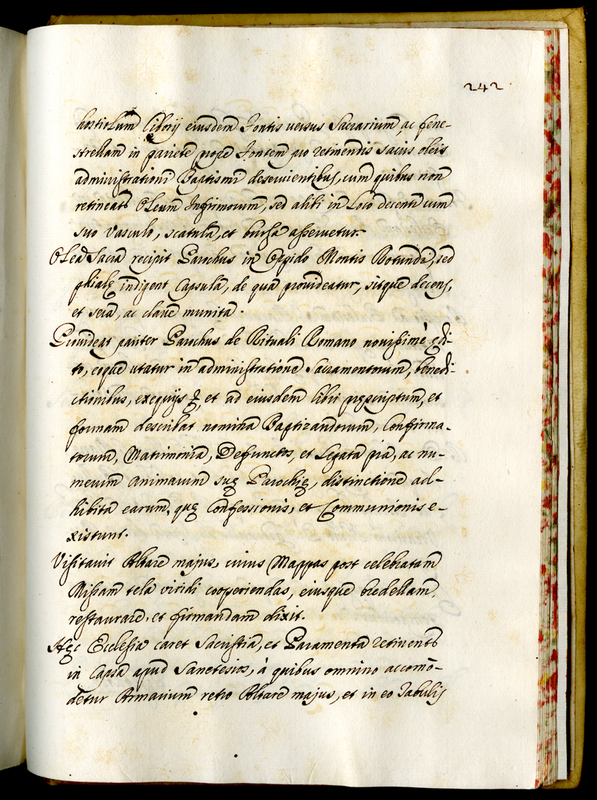 242
hostiolum Ciborij eiusdem Fontis versus Sacrarium, ac fene-
strellam in pariete prope Fontem pro retinendis sacris oleis
administrationi Baptismi deservientibus, cum quibus non
retineat Oleum Infirmorum, sed alibi in Loco decenti cum
suo Vasculo, scatula, et bursa asservetur.
Olea Sacra recipit Parochus in Oppido Montis Rotundi, sed
phialę indigent Capsula, de qua provideatur, sitque decens,
et sera, ac clave munita.
Provideat pariter Parochus de Rituali Romano novissimè ędi-
to, eoque utatur in administratione Sacramentorum, benedi-
ctionibus, exequijs et ad eiusdem libri pręscriptum, et
formam describat nomina Baptizandorum, Confirma-
torum, Matrimonia, Defunctos, et Legata pia, ac nu-
merum animarum suę Parochię, distinctione ad-
hibita earum, quę Confessionis, et Communionis e-
xistunt.
Visitavit Altare majus, cuius Mappas post celebratam
Missam tela viridi cooperiendas, eiusque bredellam
restaurare, et firmandam dixit.
Hęc Ecclesia caret Sacristia, et Paramenta retinentur
in Capsa apud Sanctesios, à quibus omnino accomo-
detur Armarium retro Altare majus, et in eo Tabulis